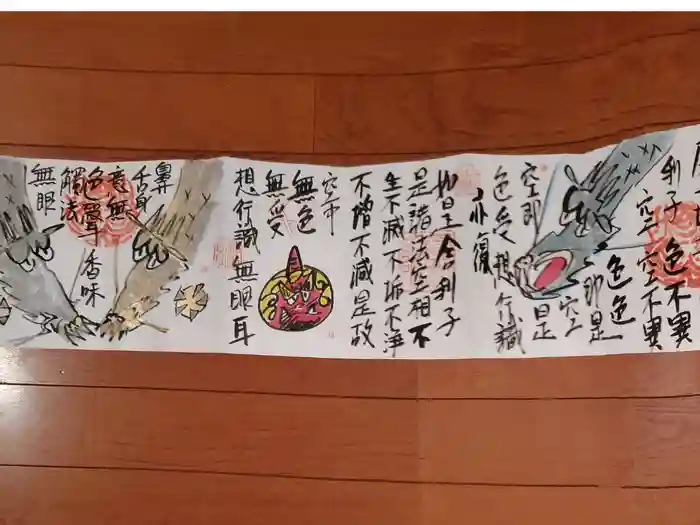 利子
不異
空空不異
色色
即是
空
空即
是
色受想行識
亦復
如是舍利子
是諸法空相不
生不滅不垢不淨
不增不減是故
空中
無色
無受
想行識無眼耳
鼻
舌身
意無
色聲香味
觸法
無眼